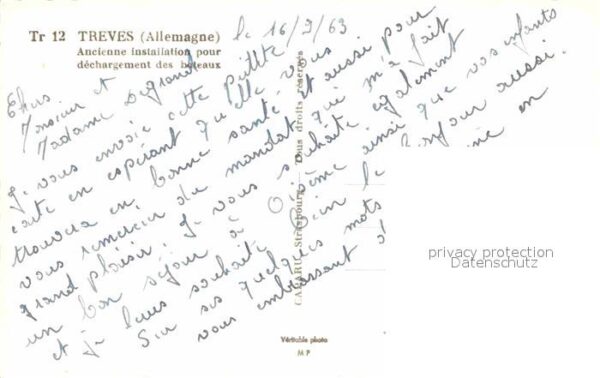 Tr 12 TREVES (Allemagne)
Ancienne installation pour
déchargement des bateaux
le 16/9/63
Chers
Monsieur et
Madame Degrand
Je vous envoie cette petite
carte en espérant qu'elle vous
trouvera en bonne santé et aussi pour
vous remercier du mandat qui m'a fait
grand plaisir. Je vous souhaite également
un bon séjour à ainsi que vos enfants
et je leurs souhaite bien le bonjour aussi.
Sur ses quelques mots en
vous embrassant
CAP ARU Strasbourg — Tous droits réservés
Véritable photo
M P
privacy protection
Datenschutz